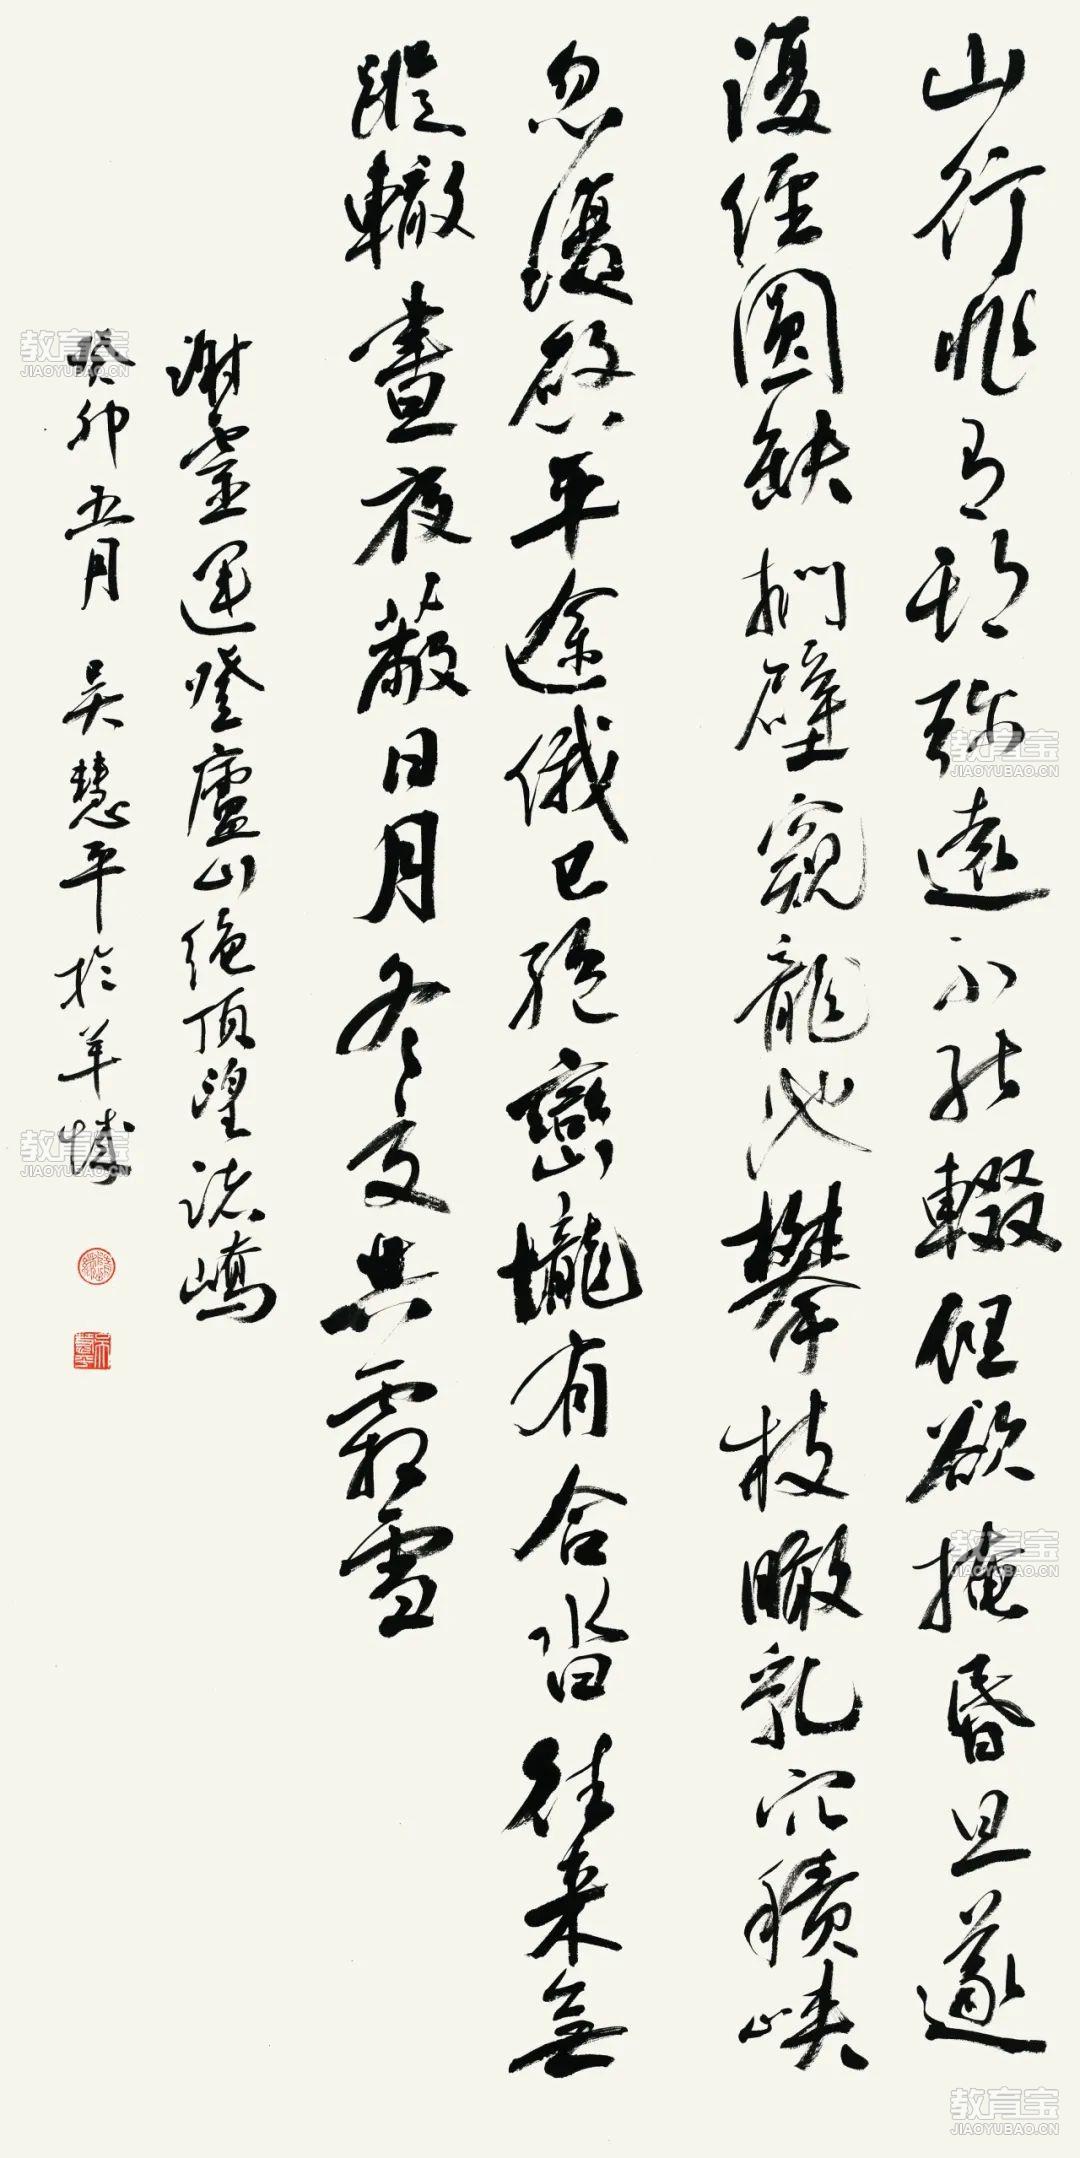 山行非有期弥遠不能輟但欲掩昏旦遂
復經圓缺捫壁窺龍池攀枝瞰乳穴積峽
忽復啟平途俄已絕巒壠有合沓往来無
蹤轍晝夜蔽日月冬夏共霜雪
謝靈運登廬山絕頂望諸嶠
癸卯五月 吳慧平於羊城
教育宝
JIAOYUBAO.CN
教育宝
JIAOYUBAO.CN
教育宝
JIAOYUBAO.CN
教育宝
JIAOYUBAO.CN
教育宝
JIAOYUBAO.CN